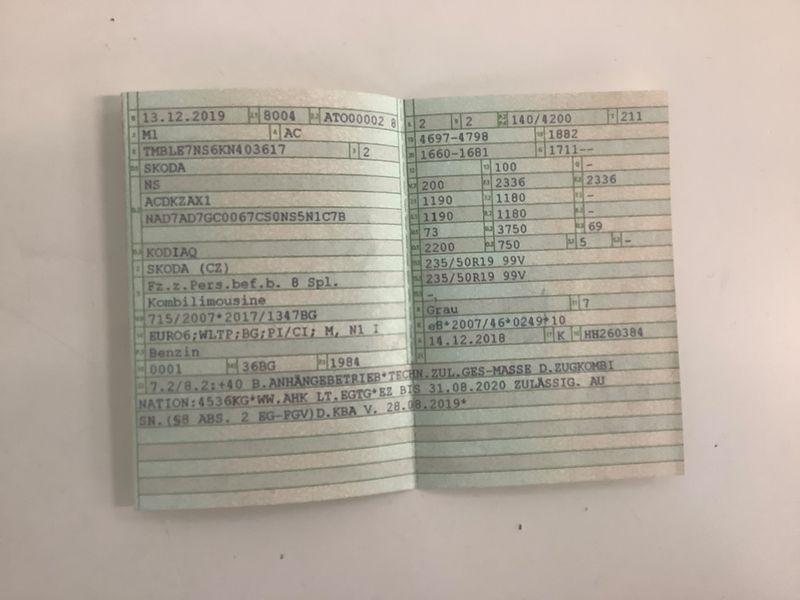 13.12.2019 8004 ATO00002 8
M1 AC
TMBLE7NS6KN403617 2
SKODA
NS
ACDKZAX1
NAD7AD7GC0067CS0NS5N1C7B
KODIAQ
SKODA (CZ)
Fz.z.Pers.bef.b. 8 Spl.
Kombilimousine
715/2007*2017/1347BG
EURO6;WLTP;BG;PI/CI; M, N1 I
Benzin
0001 36BG 1984
2 2 140/4200 211
4697-4798 1882
1660-1681 1711--
100 -
200 2336 2336
1190 1180 -
1190 1180 -
73 3750 69
2200 750 5 -
235/50R19 99V
235/50R19 99V
-
Grau 7
e8*2007/46*0249*10
14.12.2018 K HH260384
7.2/8.2:+40 B.ANHÄNGEBETRIEB*TECHN.ZUL.GES-MASSE D.ZUGKOMBI
NATION:4536KG*WW.AHK LT.EGTG*EZ BIS 31.08.2020 ZULÄSSIG. AU
SN.(§8 ABS. 2 EG-FGV)D.KBA V. 28.08.2019*